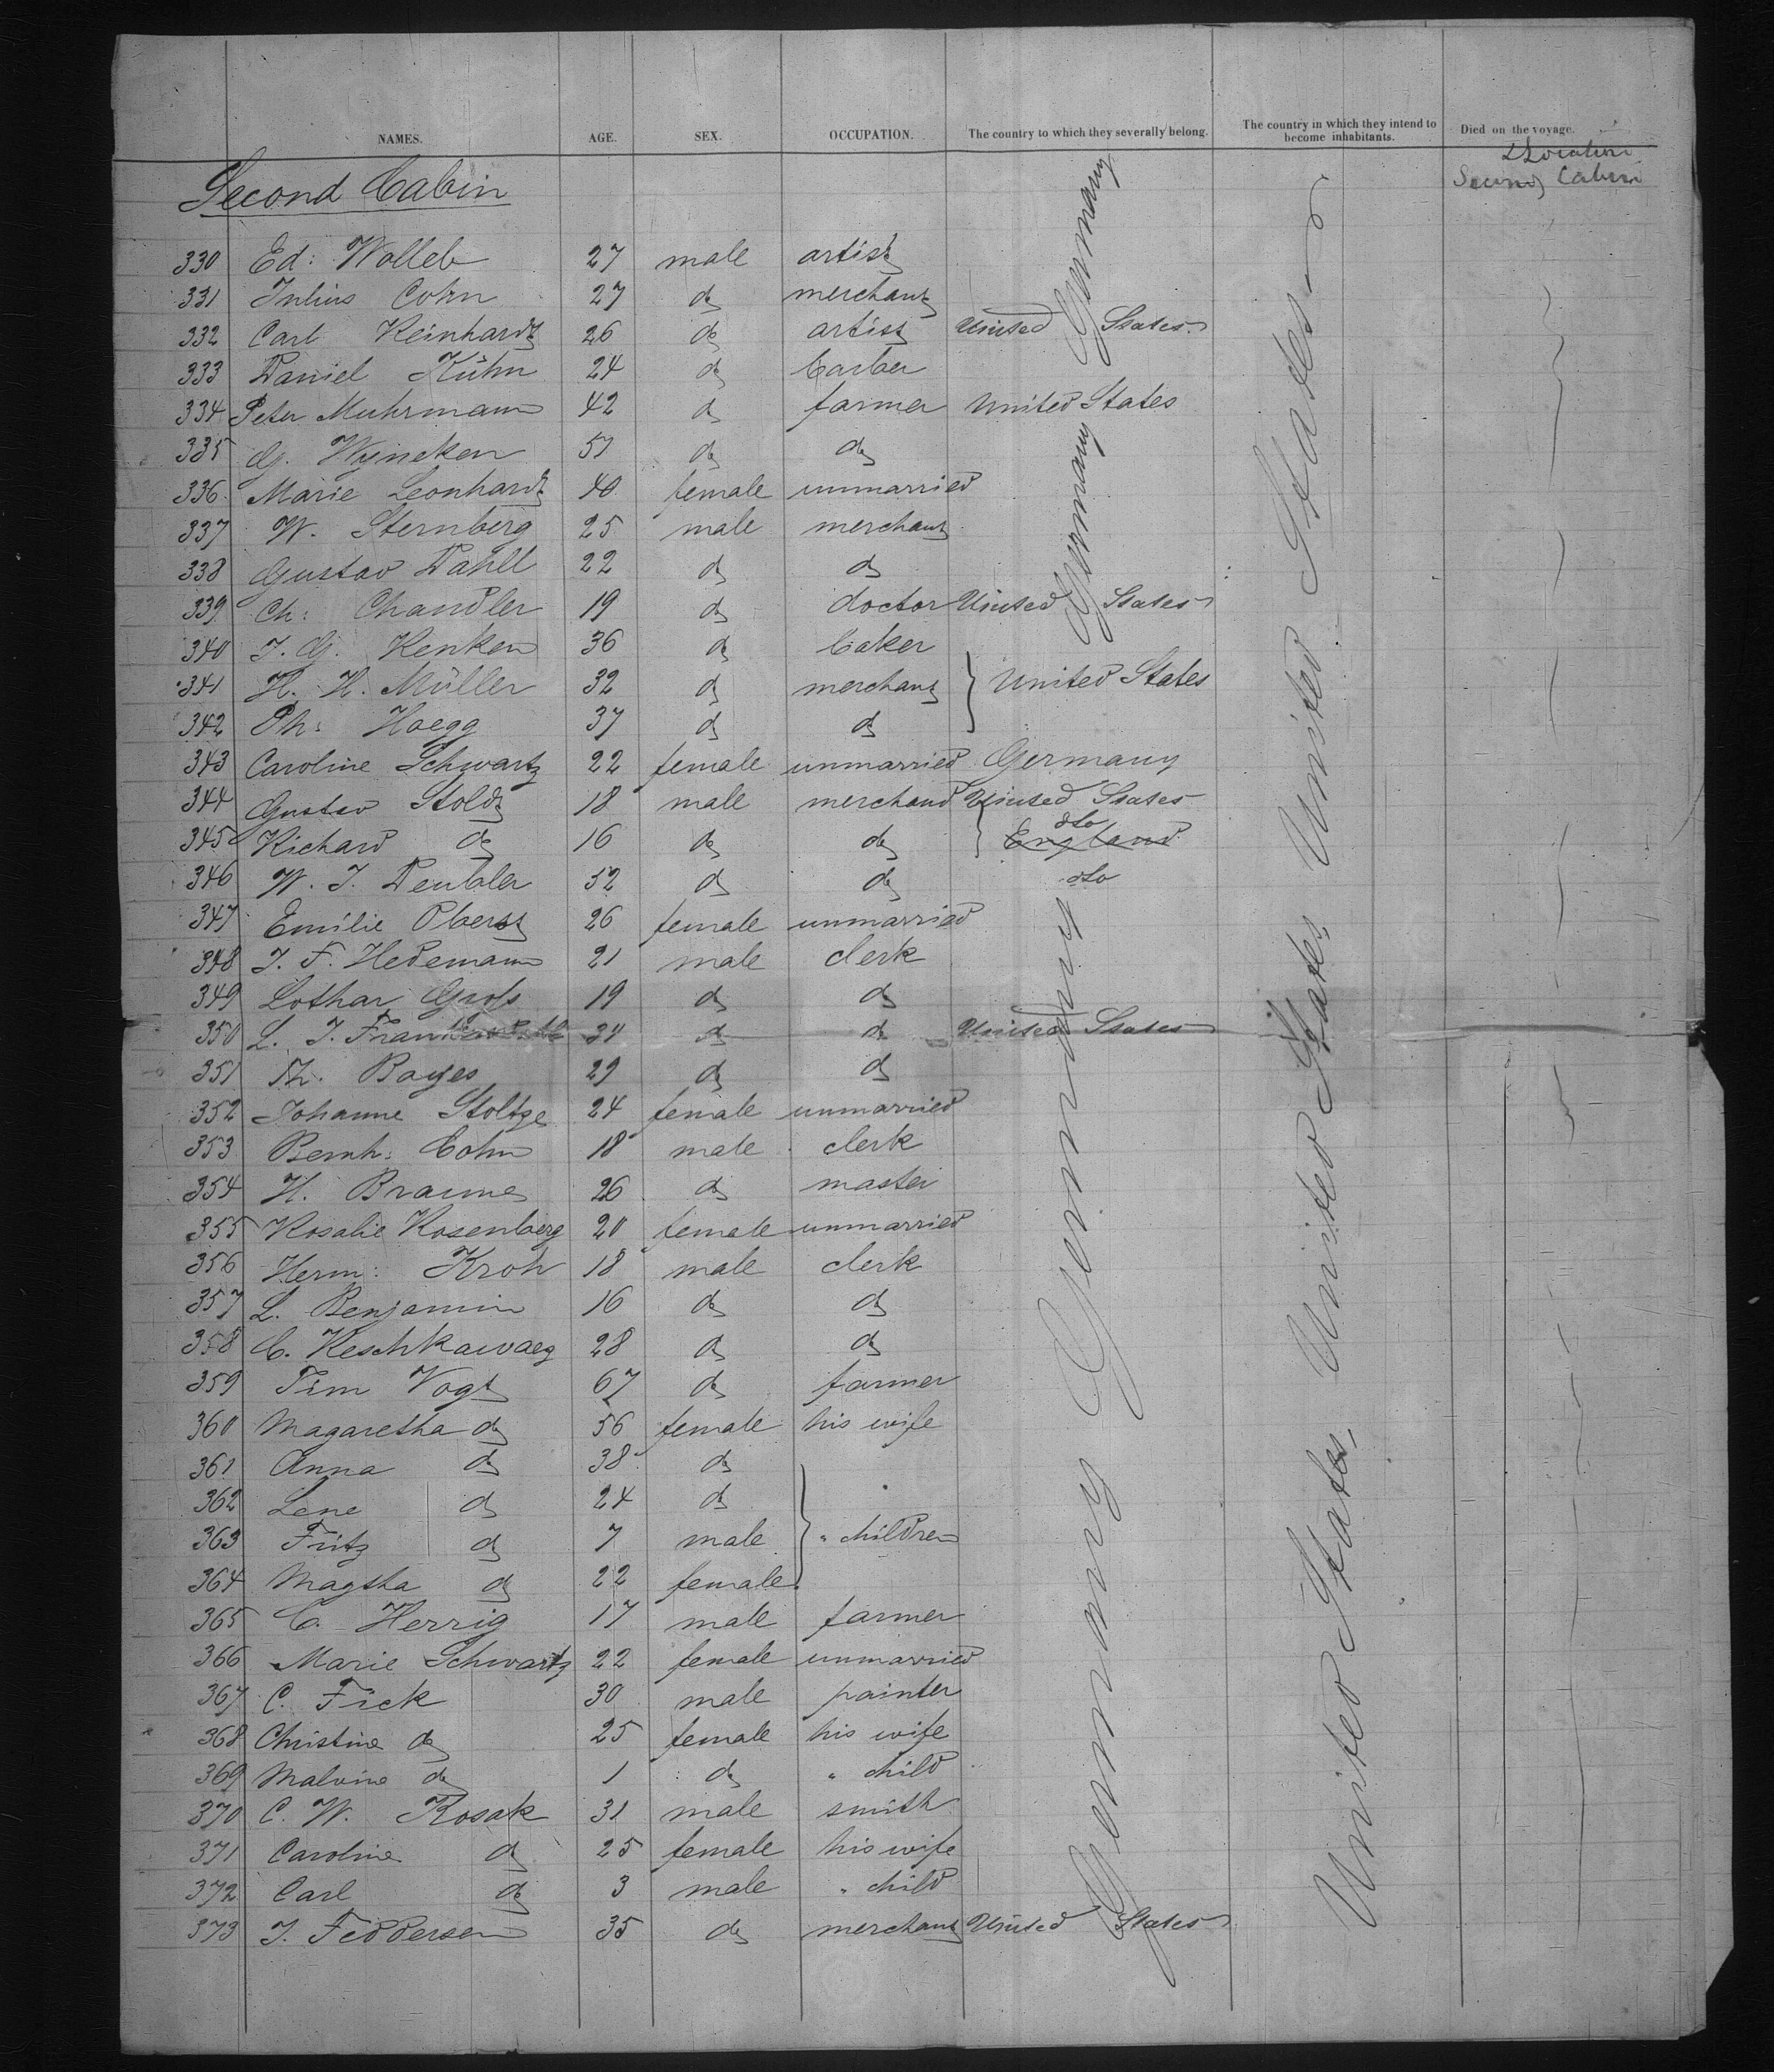 NAMES. AGE. SEX. OCCUPATION. The country to which they severally belong. The country in which they intend to become inhabitants. Died on the voyage.
Location
Second Cabin Second Cabin
330 Ed: Wolleb 27 male artist
331 Julius Cohn 27 do merchant
332 Carl Reinhardt 26 do artist United States
333 Daniel Kühn 24 do barber
334 Peter Muhrmann 42 do farmer United States
335 G. Wyneken 51 do do
336 Marie Leonhardt 40 female unmarried
337 W. Sternberg 25 male merchant
338 Gustav Dahll 22 do do
339 Ch: Chandler 19 do doctor United States
340 J. G. Renken 36 do baker
341 H. H. Müller 32 do merchant } United States
342 Ph: Hoegg 37 do do
343 Caroline Schwartz 22 female unmarried Germany
344 Gustav Stoldt 18 male merchand United States
345 Richard do 16 do do } dto England
346 W. J. Deubler 52 do do dto
347 Emilie Oberst 26 female unmarried
348 J. F. Hedemann 21 male clerk
349 Lothar Groſs 19 do do
350 L. J. 34 do do United States
351 Th. Boyes 29 do do
352 Johanne Stoltze 24 female unmarried
353 Bernh: Cohn 18 male clerk
354 H. Braune 26 do master
355 Rosalie Rosenberg 20 female unmarried
356 Herm: Kroh 18 male clerk
357 L. Benjamin 16 do do
358 C. Reschkawaeg 28 do do
359 Tim Vogt 67 do farmer
360 Magaretha do 56 female his wife
361 Anna do 38 do
362 Lene do 24 do
363 Fritz do 7 male } " children
364 Magtha do 22 female
365 C. Herrig 17 male farmer
366 Marie Schwartz 22 female unmarried
367 C. Fick 30 male painter
368 Christine do 25 female his wife
369 Malvine do 1 do " child
370 C. W. Kosak 31 male smith
371 Caroline do 25 female his wife
372 Carl do 3 male " child
373 J. Feddersen 35 do merchant United States
Germany
Germany
Germany
Germany
United States
United States,
United States,